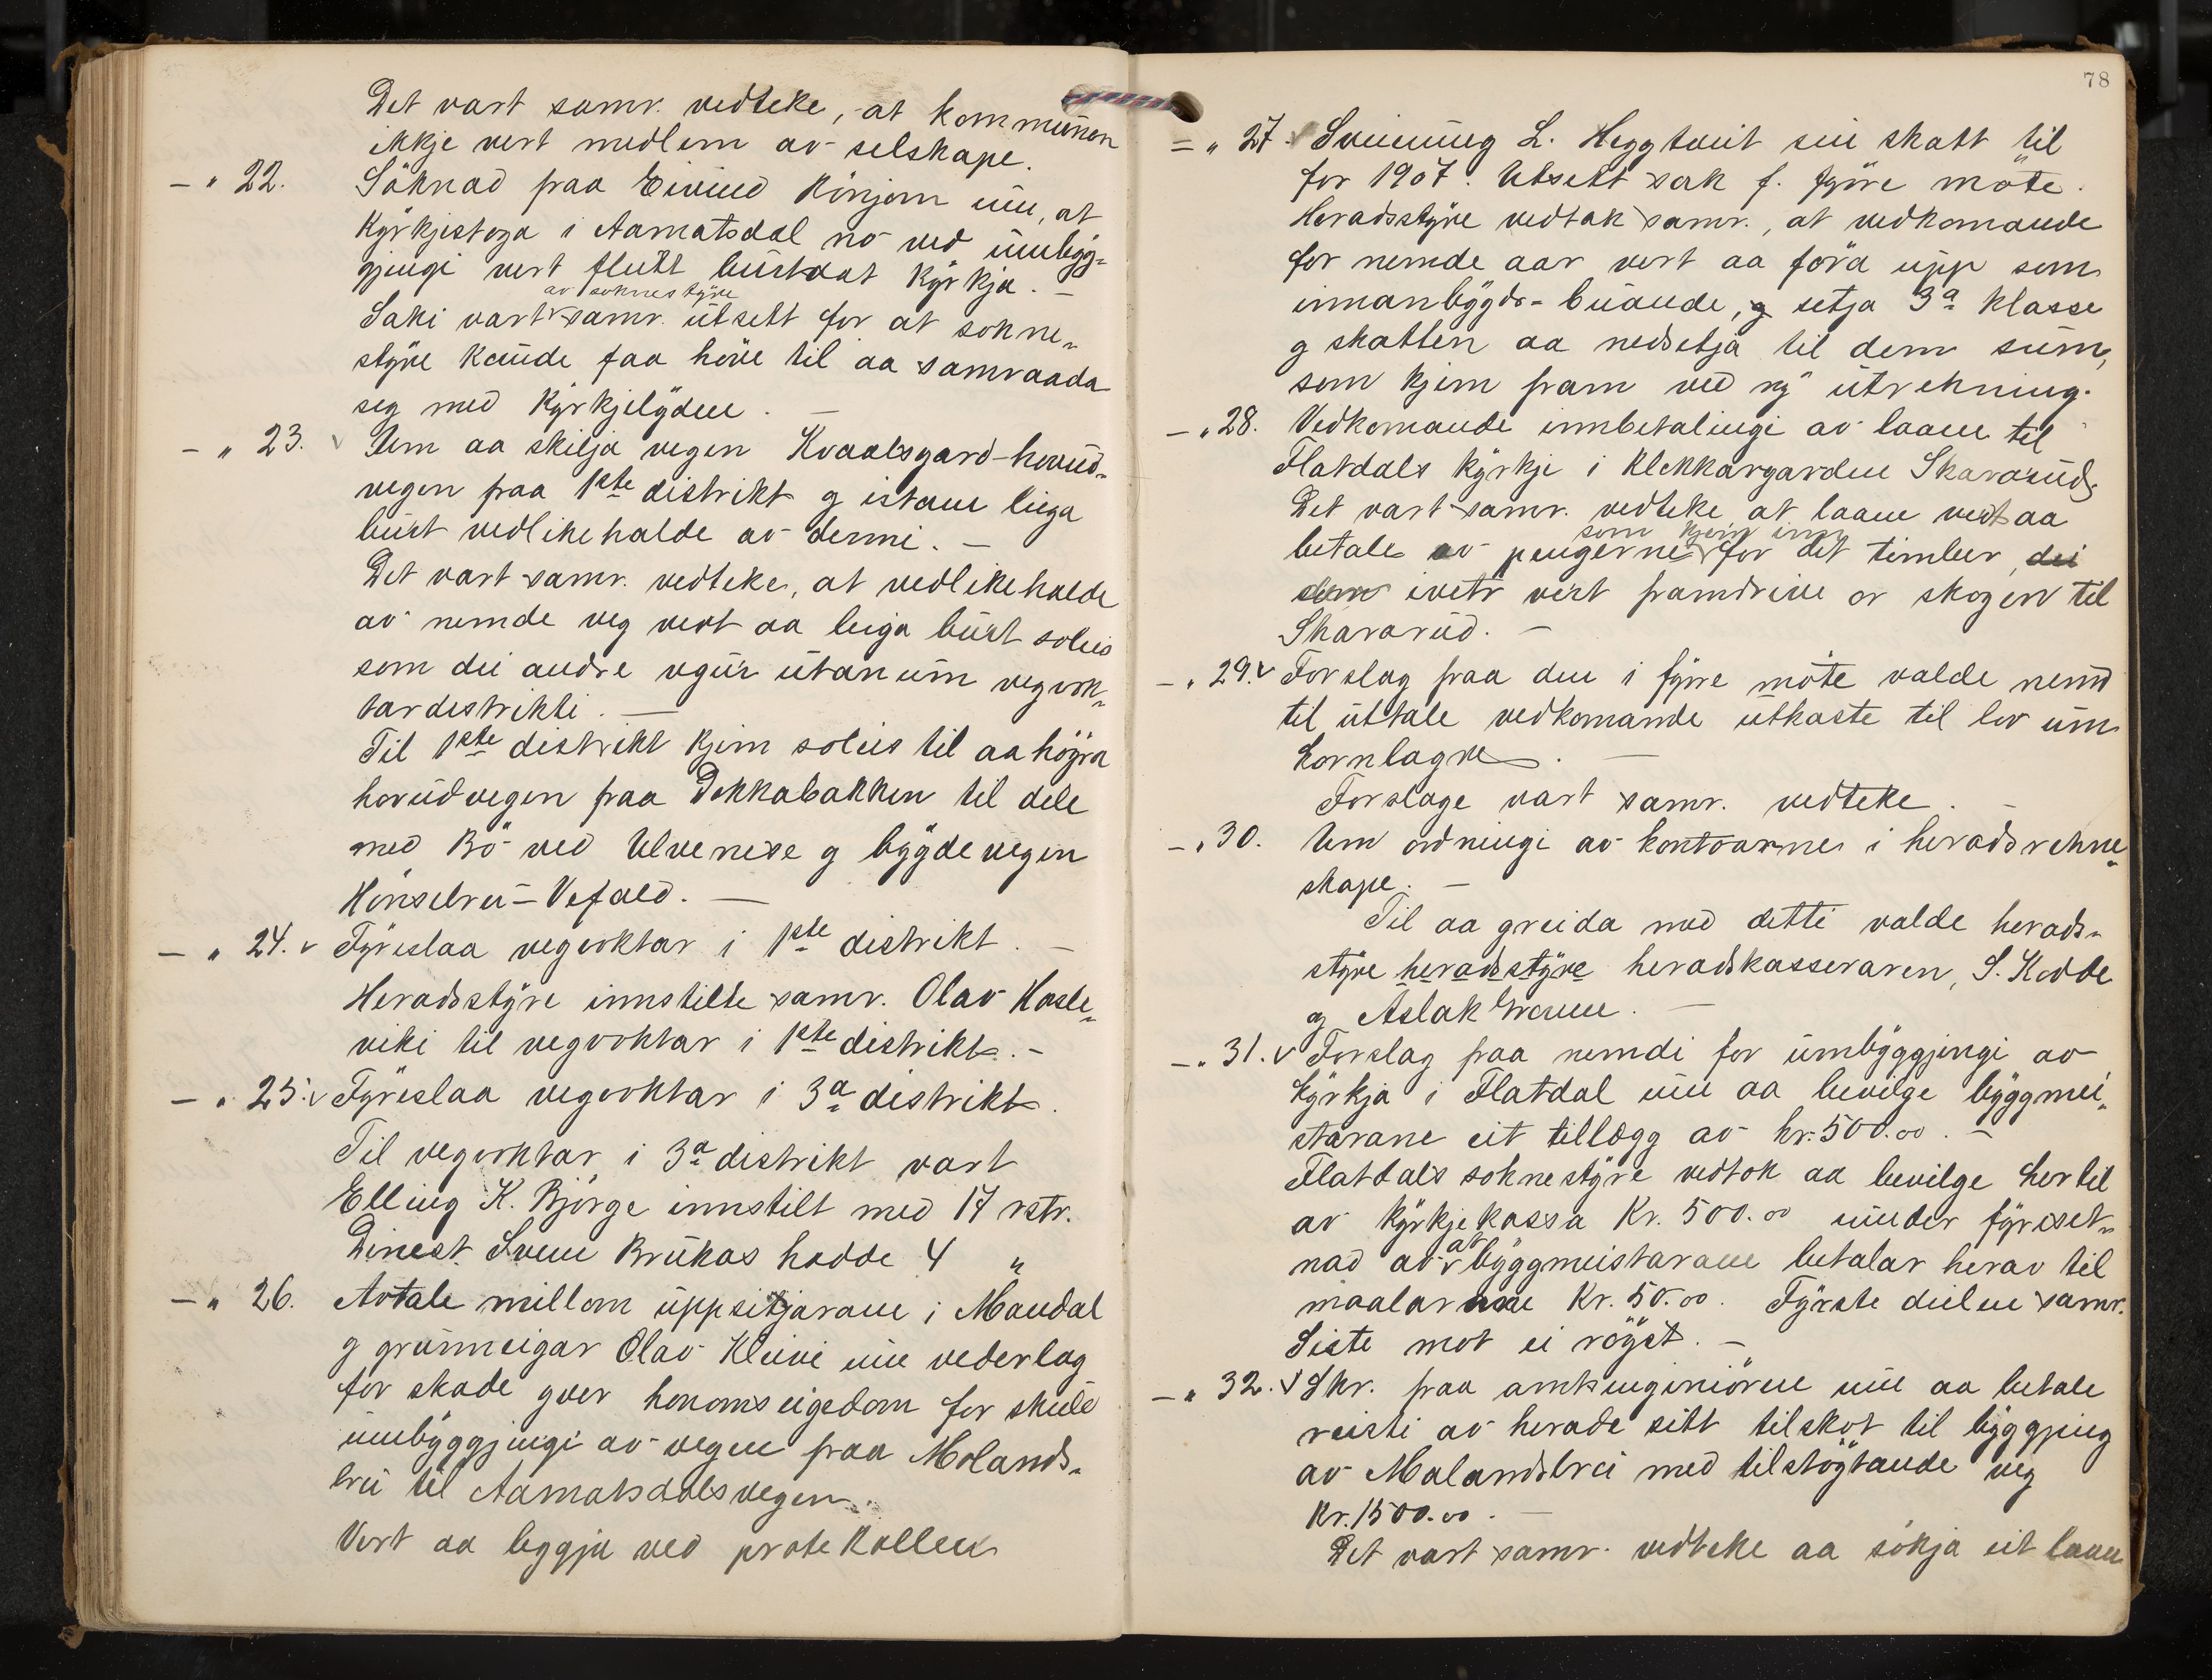 Det vart samr. vedteke, at kommunen
ikkje vert medlem av selskape.
— " 22. Söknad fraa Eivind Kónjom um, at
Kyrkjestoga i Aamotsdal no ved umbyg-
gjingi vert flutt burt dat Kyrkja. —
av soknestyre
Saki vart samr. útsett for at sokne-
styre kunde faa höve til aa samraada
seg med Kyrkjelyden. —
— " 23. v Um aa skilja vegen Kvaalsgard-hovud-
vegen fraa 1ste distrikt g istaen leiga
burt vedlikehalde av denni. —
Det vart samr. vedteke, at vedlikehalde
av nemde veg vert aa leiga burt soleis
som dei andre vgúr útanúm vegvok-
tardistrikti. —
Til 1ste distrikt kjem soleis til aa höyra
hovúdvegen fraa Dokkabakken til dele
med Bö ved Ulvenese g bygdevegen
Hönselvu-Vefald. —
— " 24. v Fyreslaa vegvoktar i 1ste distrikt. —
Heradsstyre innstilte samr. Olav Hasle-
viki til vegvoktar i 1ste distrikt. —
— " 25. v Fyreslaa vegvoktar i 3a distrikt.
Til vegvoktar i 3a distrikt vart
Elling K. Björge innstilt med 17 rstr.
Dinest. Svein Brúkås hadde 4 "
— " 26. Avtale millom úppsitjarane i Mandal
g grúnneigar Olav Kleivi um vederlag
for skade yver honoms eigedom for skuld
umbyggjingi av vegen fraa Molands-
brú til Aamotsdalsvegen.
Vert aa leggja ved protekollen

78
= " 27. v Sveinúng L. Heggtveit sin skatt til
for 1907. Utsett sak f. fyrre möte.
Heradsstyre vedtak samr., at vedkomande
for nemde aar vert aa föra úpp som
innanbygds-búande, g setja 3a klasse
g skatten aa nedsetja til dem súm,
som kjem fram ved ny útrekning.
— " 28. Vedkomande innbetalingi av laanet til
Flatdals kyrkje i klokkargarden Skararúd.
Det vart samr. vedteke at laanet vert aa
som kjem inn
betale av pengerne for det timber, dei
dem ivetr vert framdrive or skogen til
Skararúd. —
— " 29. v Forslag fraa den i fyrre möte valde nemd
til úttale vedkomande útkaste til lov úm
kornlagre. —
Forslage vart samr. vedteke. —
— " 30. Um ordningi av kontoarne i heradsrekne-
skape. —
Til aa greida med detti valde herads-
styre heradsstyre heradskasseraren, S. Kodde
g Aslak Graue. —
— " 31. v Forslag fraa nemdi for úmbyggjingi av
kyrkja i Flatdal um aa bevilge byggmei-
starane eit tillægg av kr. 500.00. —
Flatdals soknestyre vedtok aa bevilge hertil
av kyrkjekassa Kr. 500.00 únder fyreset-
nad av at byggmeistarane betalar herav til
maalarne Kr. 50.00. Fyrste deilen samr.
Siste mot ei röyst. —
— " 32. v Skr. fraa amtsingeniören um aa betale
reisti av herade sitt tilskot til byggjing
av Malandsbrú med tilstöytande veg
Kr. 1500.00. —
Det vart samr. vedteke aa sökja eit laan